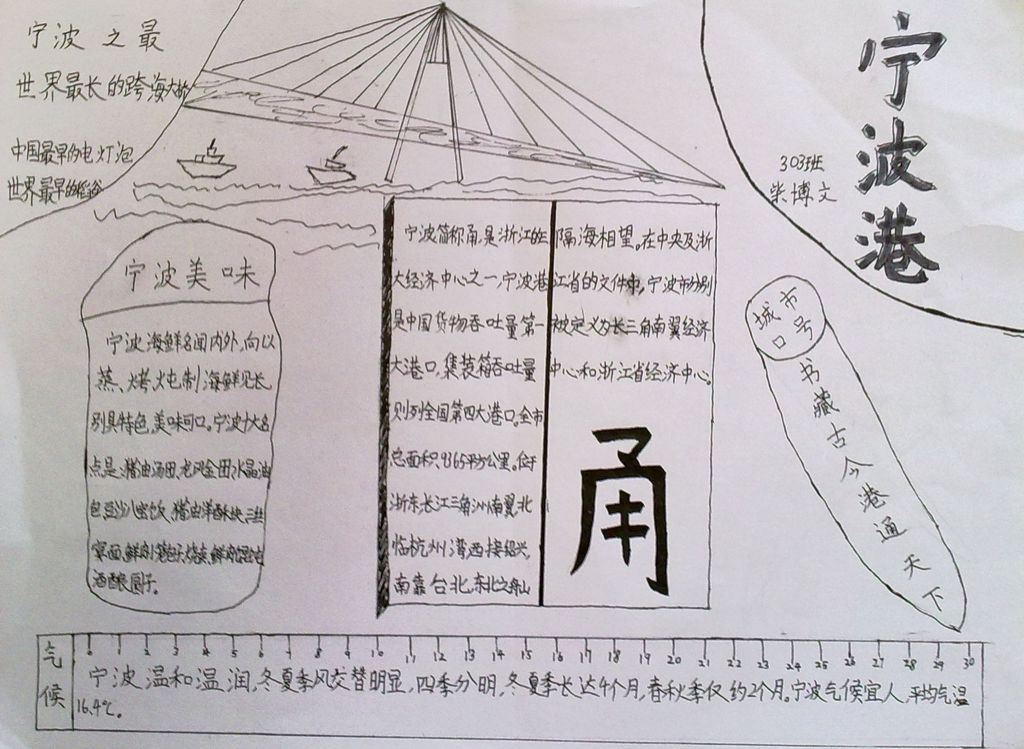 宁波之最
世界最长的跨海大桥
中国最早的电灯泡
世界最早的稻谷
宁波港
303班
柴博文
宁波美味
宁波海鲜名闻内外,向以
蒸、烤、炖制海鲜见长,
别具特色,美味可口。宁波十大名
点是:猪油汤团、龙凤金团、水晶油
包、豆沙八
酒酿圆子。
宁波简称甬,是浙江的三
大经济中心之一,宁波港
是中国货物吞吐量第一
大港口,集装箱吞吐量
则列全国第四大港口。全市
总面积9365平方公里。位于
浙东长江三角洲南翼,北
临杭州湾,西接绍兴,
南靠台北,东北之舟山
隔海相望。在中央及浙
江省的文件中,宁波市分别
被定义为长三角南翼经济
中心和浙江省经济中心。
甬
城市
口号
书藏古今港通天下
气候
0 1 2 3 4 5 6 7 8 9 10 11 12 13 14 15 16 17 18 19 20 21 22 23 24 25 26 27 28 29 30
宁波温和温润,冬夏季风交替明显,四季分明,冬夏季长达4个月,春秋季仅约2个月。宁波气候宜人,平均气温
16.4℃。